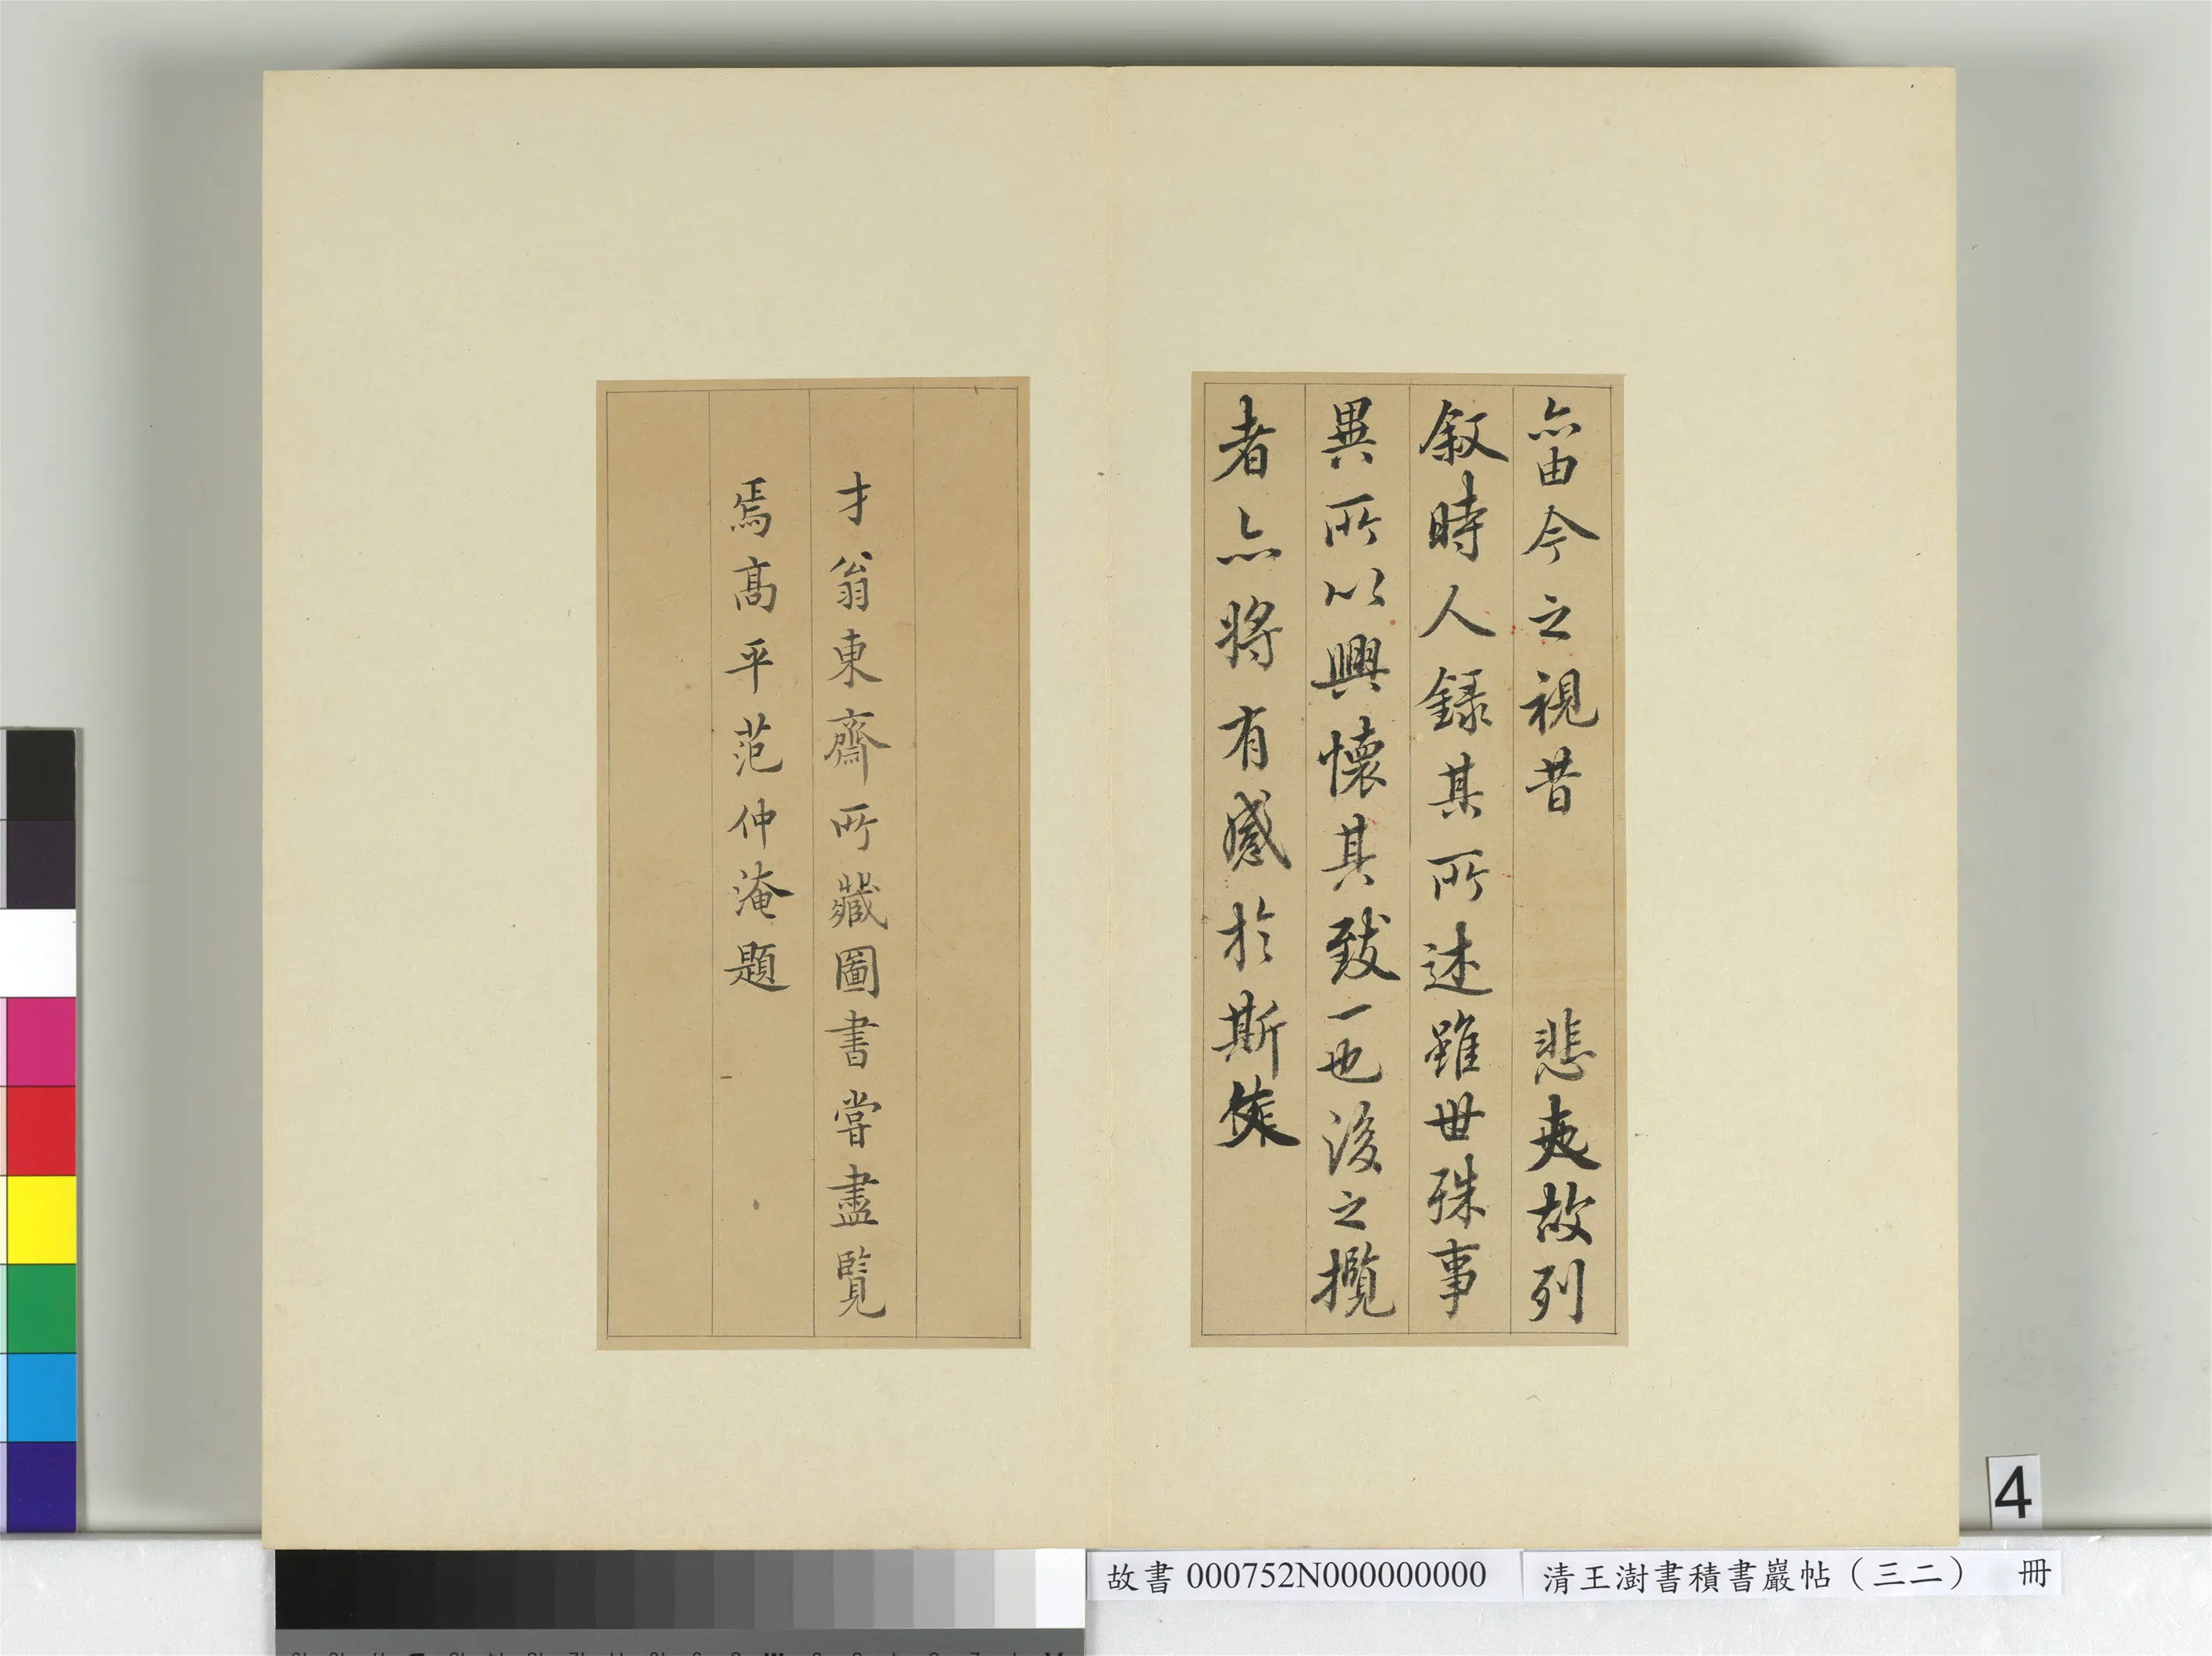 亦由今之視昔 悲夫故列
叙時人録其所述雖世殊事
異所以興懷其致一也後之攬
者亦將有感於斯文
才翁東齋所藏圖書嘗盡覽
焉高平范仲淹題
4
故書 000752N000000000
清王澍書積書巖帖（三二） 冊